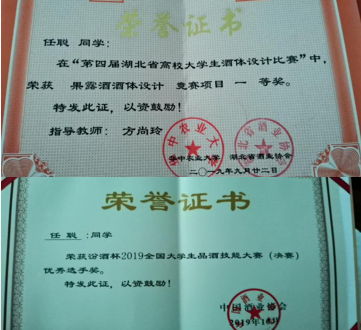 荣誉证书
任聪 同学:
在“第四届湖北省高校大学生酒体设计比赛”中,
荣获 果露酒酒体设计 竞赛项目 一 等奖。
特发此证,以资鼓励!
指导教师: 方尚玲
华中农业大学 湖北省酒业协会
二〇一九年九月廿二日
荣誉证书
任 聪 :同学
荣获汾酒杯2019全国大学生品酒技能大赛(决赛)
优秀选手奖。
特发此证,以资鼓励!
中国酒业协会
2019年10月